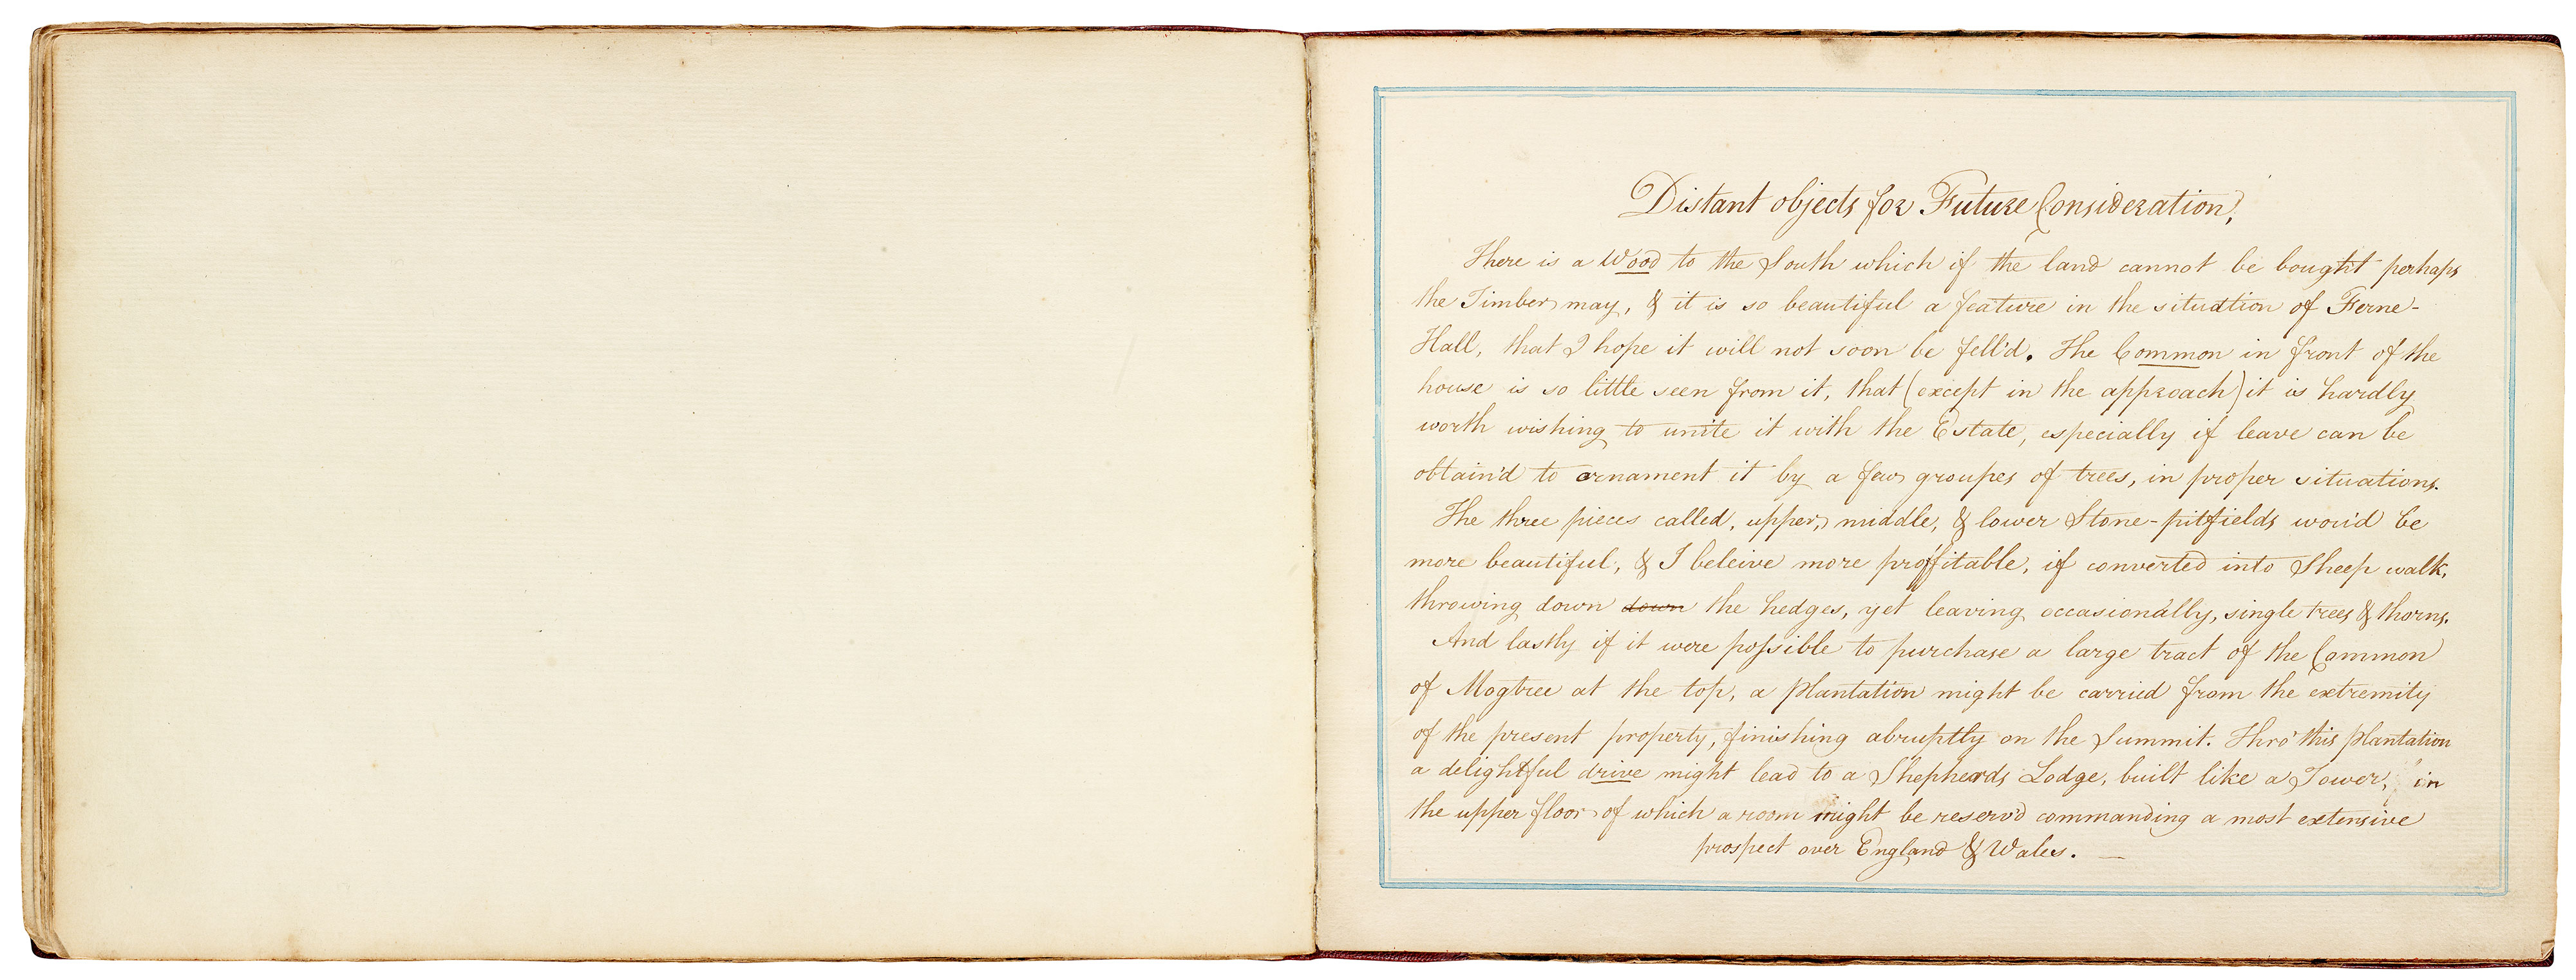 Distant objects for Future Consideration,
There is a Wood to the South which if the land cannot be bought perhaps
the Timber may, & it is so beautiful a feature in the situation of Ferne-
Hall, that I hope it will not soon be fell'd. The Common in front of the
house is so little seen from it, that (except in the approach) it is hardly
worth wishing to unite it with the Estate, especially if leave can be
obtain'd to ornament it by a few groupes of trees, in proper situations.
The three pieces called, upper, middle, & lower Stone-pitfields wou'd be
more beautiful, & I beleive more proffitable, if converted into Sheep walk,
throwing down down the hedges, yet leaving occasionally, single trees & thorns.
And lastly if it were possible to purchase a large tract of the Common
of Mogtree at the top, a plantation might be carried from the extremity
of the present property, finishing abruptly on the Summit. Thro' this plantation
a delightful drive might lead to a Shepherds Lodge, built like a Tower, in
the upper floor of which a room might be reserv'd commanding a most extensive
prospect over England & Wales. —